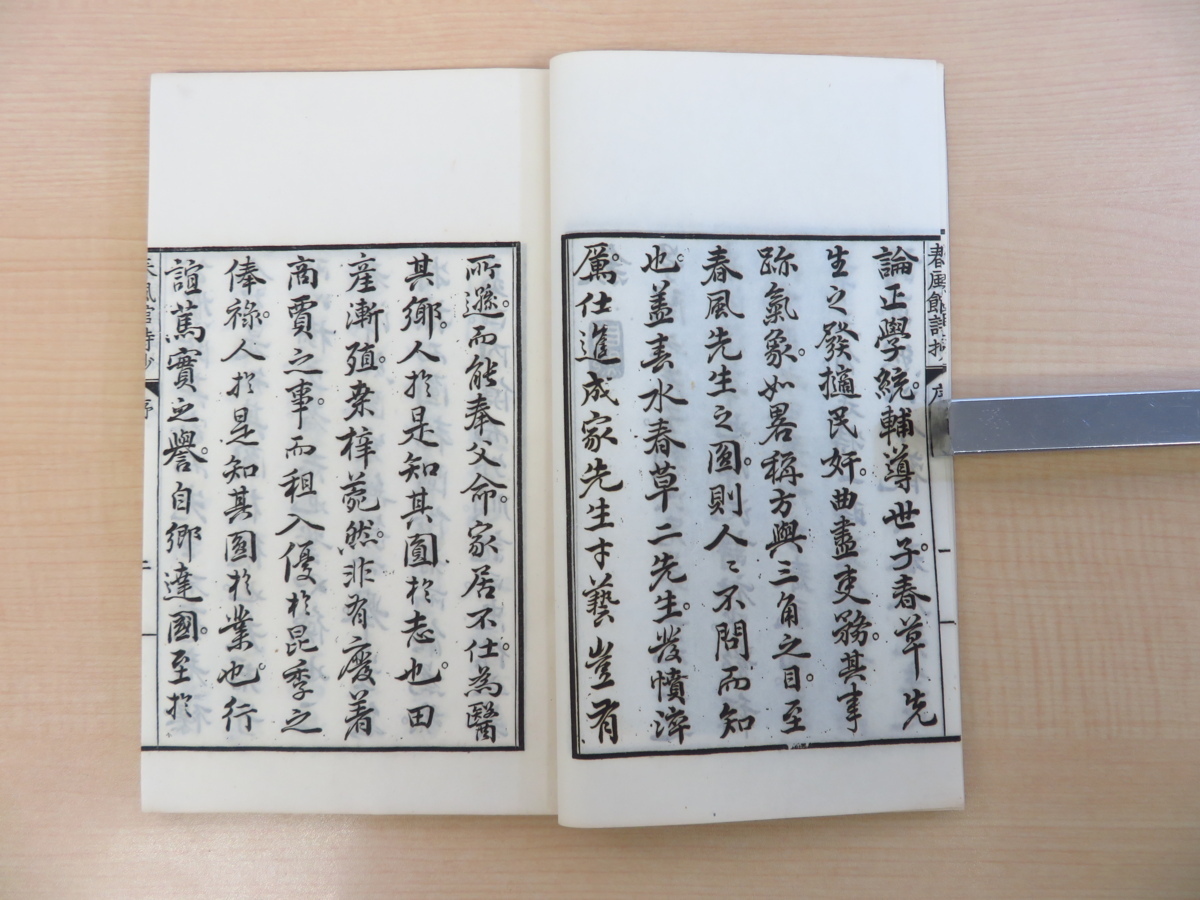 春風館詩抄
論正學統。輔導世子。春草先
生之發擿民奸。曲盡吏務。其事
跡氣象。如畧稱方與三角之目。至
春風先生之圓。則人〻不問而知
也。盖春水春草二先生。發憤淬
厲。仕進成家。先生才藝豈有
所遜。而能奉父命。家居不仕。為醫
其鄉。人於是知其圓於志也。田
產漸殖。桑梓菀然。非有廢着
商賈之事。而租入優於昆季之
俸祿。人於是知其圓於業也。行
誼篤實之譽。自鄉達國。至於
春風館詩抄
序
二